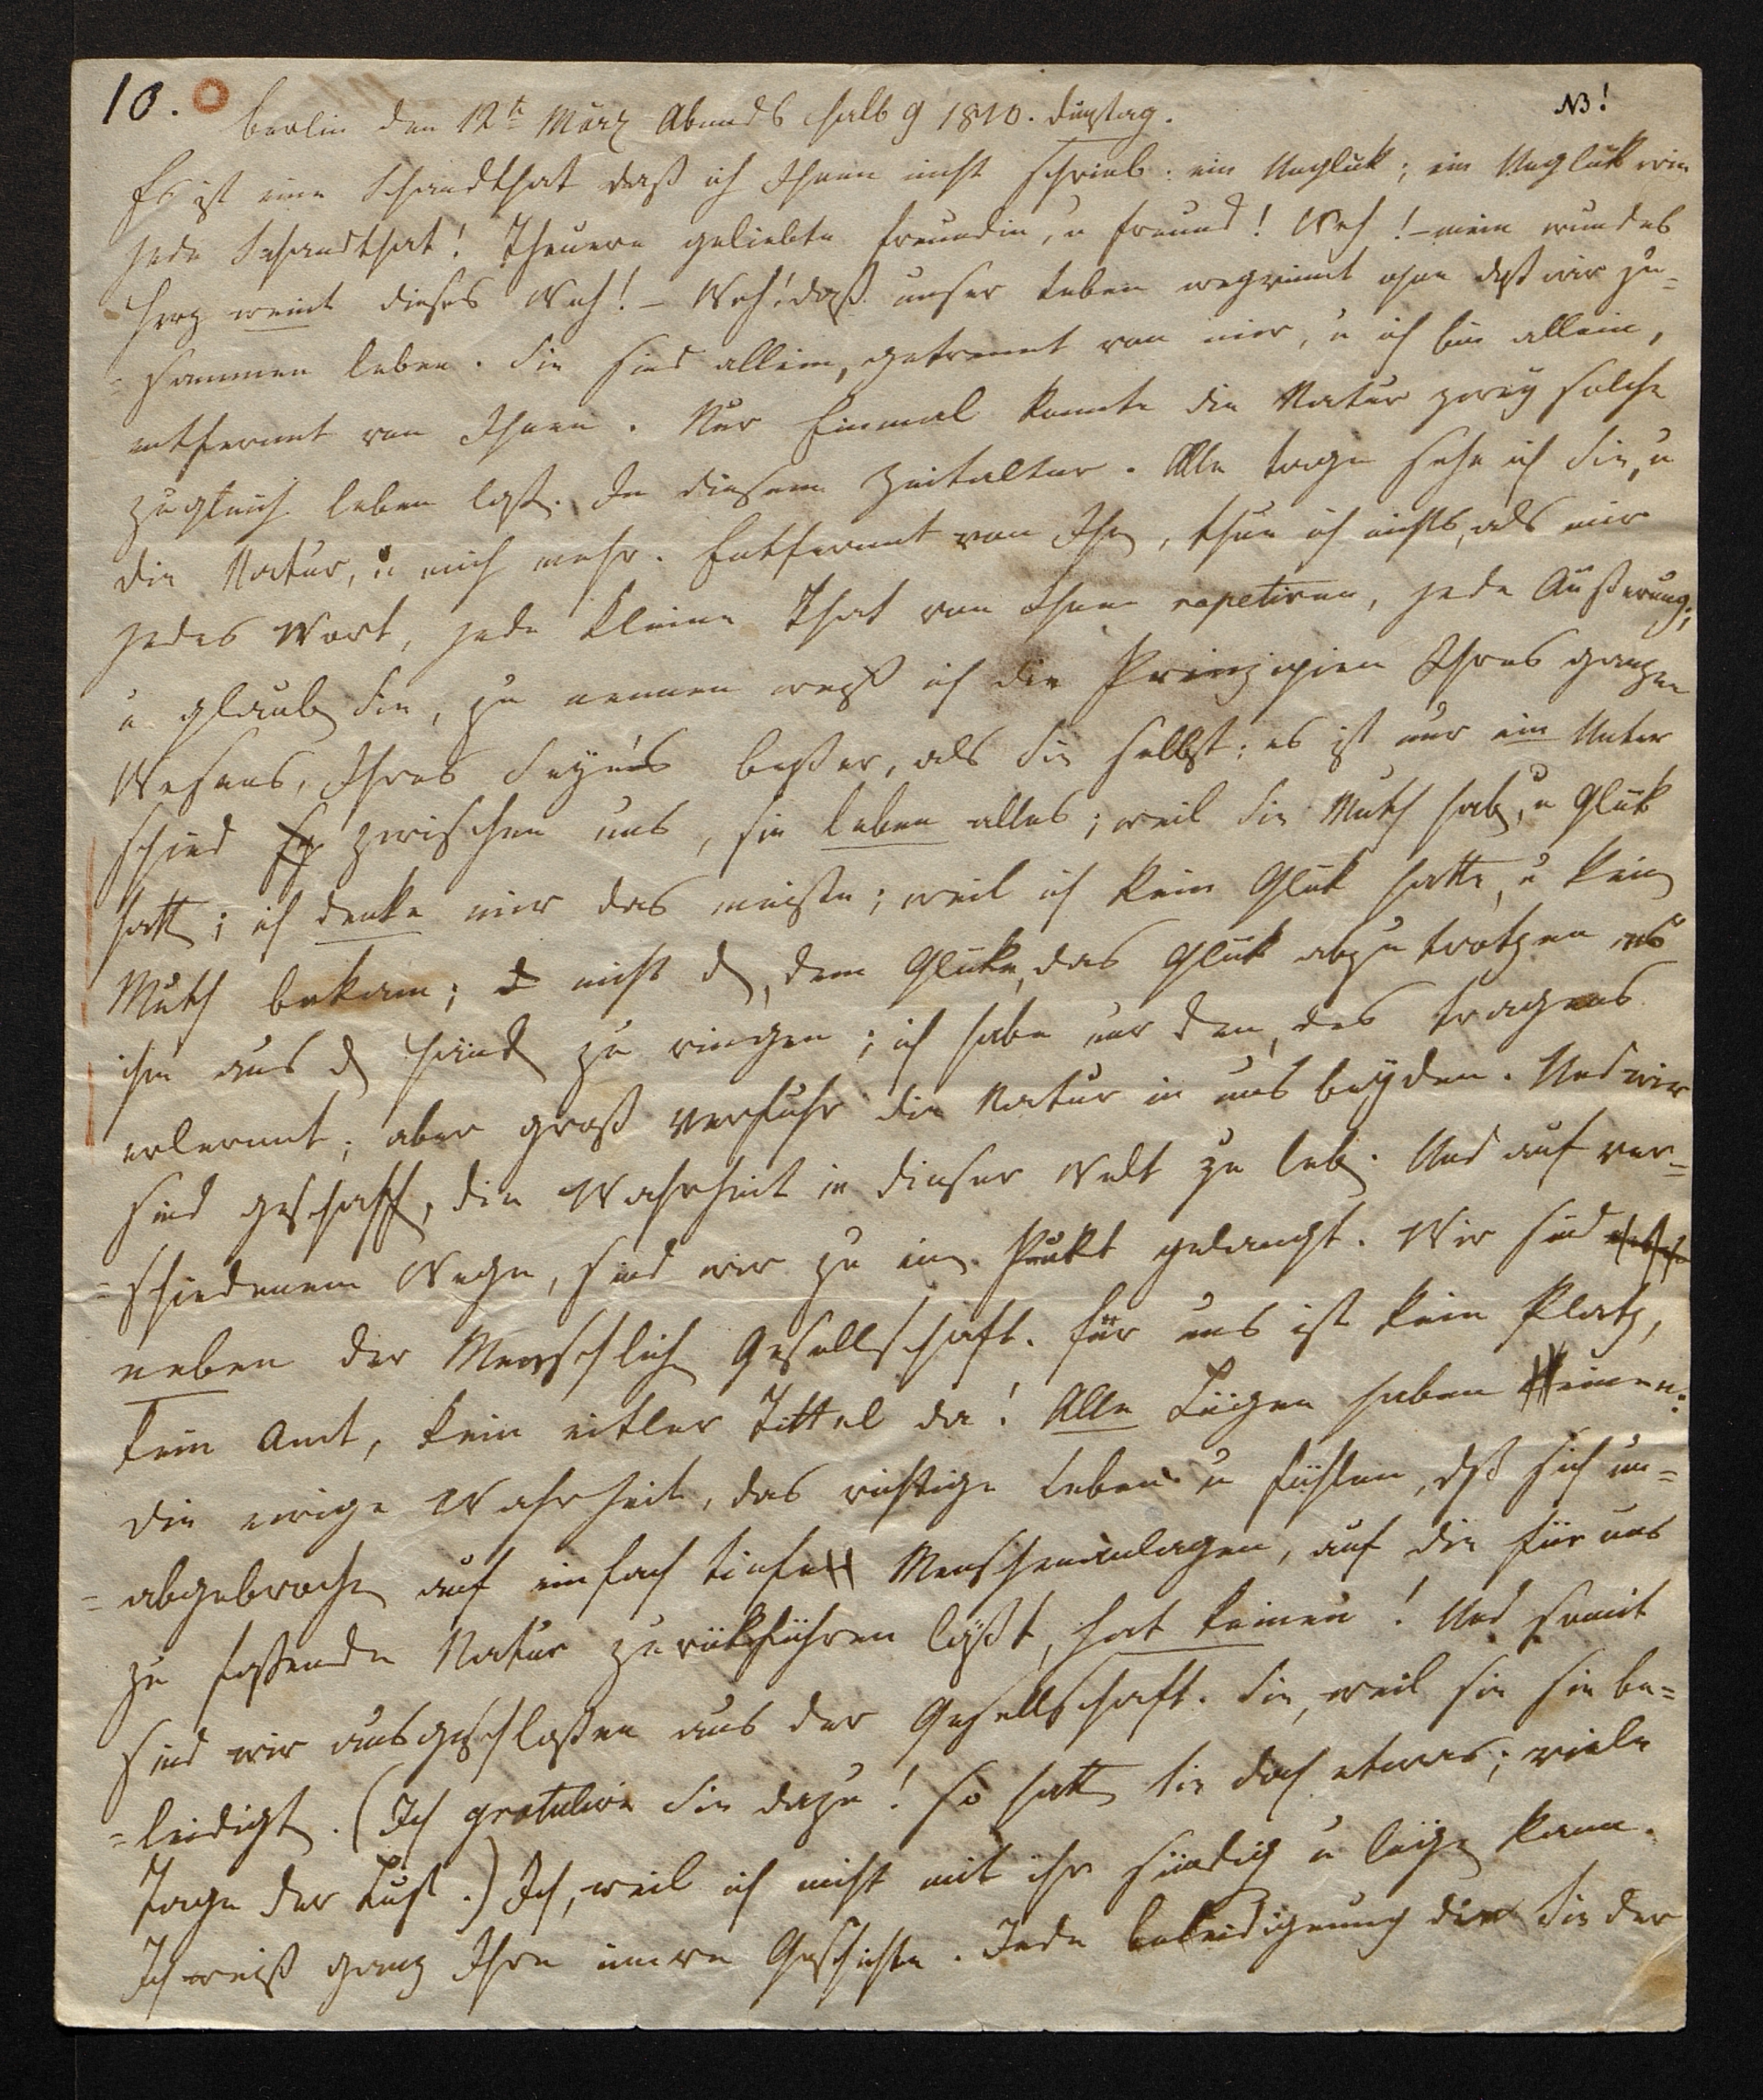 10.
NB!
Berlin den 12t März Abends halb 9 1810. dinstag.
Es ist eine Schandthat daß ich Ihnen nicht schrieb: ein Unglük; ein Unglük wie
jede Schandthat! Theuere geliebte Freundin, u Freund! Weh! – mein wundes
Herz weint dieses Weh! – Weh! daß unser Leben wegrinnt ohne daß wir zu=
=sammen leben. Sie sind allein, getrennt von mir, u ich bin allein,
entfernt von Ihnen. Nur Einmal konnte die Natur zwey solche
zugleich leben laß. In diesem Zeitalter. Alle tage sehe ich Sie, u
die Natur, u mich mehr. Entfernt von Ihn, thue ich nichts, als mir
jedes Wort, jede kleine That von Ihnen repetiren, jede Äußerung;
u glaub Sie, zu nennen weiß ich die Prinzipien Ihres ganzen
Wesens, Ihres Seyn's beßer, als Sie selbst: es ist nur ein Unter
schied zwischen uns, sie leben alles; weil Sie Muth hab, u Glük
hatt; ich denke mir das meiste; weil ich kein Glük hatte, u kein
Muth bekam; nicht d, dem Glüke, das Glük abzutrotzen es
ihm aus d Händ zu ringen; ich habe nur den, des tragens
erlernt; aber groß verfuhr die Natur in uns beyden. Und wir
sind geschaff, die Wahrheit in dieser Welt zu leb. Und auf ver=
=schiedenem Wege, sind wir zu ein Punkt gelangt. Wir sind
neben der Menschlich Gesellschaft. für uns ist kein Platz,
kein Amt, kein eitler Tittel da! Alle Lügen haben einen:
die ewige Wahrheit, das richtige Leben u fühlen, dß sich un=
=abgebroche auf einfach tiefe Menschenanlagen, auf die für uns
zu faßende Natur zurükführen läßt, hat keinen! Und somit
sind wir ausgeschloßen aus der Gesellschaft. Sie, weil sie sie be=
=leidigt. (Ich gratulire Sie dazu! so hatt Sie doch etwas; viele
tage der Lust.) Ich, weil ich nicht mit ihr sündig u lüge kann.
Ich weiß ganz Ihre innere Geschichte. Jede beleidigung die Sie der